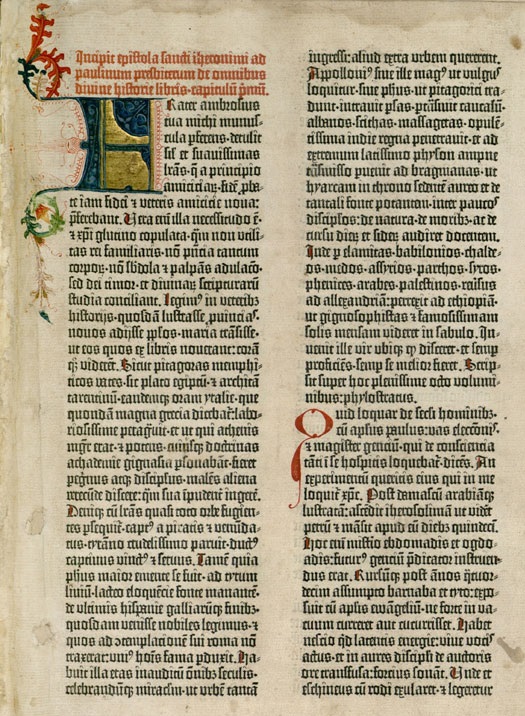 Incipit epistola sancti iheronimi ad
paulinum presbiterum de omnibus
divine historie libris. capitulū pmū.
Frater ambrosius
tua michi munus-
cula pferens. detulit
sił et suavissimas
lrās. q̄ a principio
amiciciaꝝ. fidē pba-
te iam fidei et veteris amicicie nova:
pferebant. Vera em illa necessitudo ē.
et xpi glutino copulata. qm non utili-
tas rei familiaris. nō pntia tantum
corporꝝ. nō sbdola et palpās adulaco.
sed dei timor. et divinaꝝ scripturarū
studia conciliant. Legim⁹ in veteribꝫ
historijs. quosdā lustrasse puincias.
novos adijsse pplos. maria trāsisse.
ut eos quos ex libris noverant: corā
qꝫ viderēt. Sicut pitagoras memphi-
ticos vates. sic plato egiptū. et architā
tarentinū. eandemqꝫ oram ytalie. que
quondā magna grecia dicebat̄: labo-
riosissime pagvit. et ut qui athenis
mgr̄ erat. et potens. cuiusqꝫ doctrinas
achademie gignasia psonabāt. fieret
pegrinus atqꝫ discipulus. malēs aliena
verecūde discere: qm̄ sua īpudent̄ ingerē.
Deniqꝫ cū lrās quasi toto orbe fugien-
tes psequit̄. capt⁹ a piratis et venūda-
tus. tyrāno crudelissimo paruit. duct⁹
captivus vinct⁹ et servus. Tamē quia
phūs maior emente se fuit. ad tytum
liviū. lacteo eloquētie fonte manantē.
de ultimis hispanie galliarūqꝫ finibꝫ.
quosdam venisse nobiles legimus. et
quos ad ↄtemplationē sui roma nō
traxerat: uni⁹ hoīs fama pduxit. Ha-
buit illa etas inauditū omnibꝫ seculis.
celebrandūqꝫ miraclm̄. ut urbē tantā
ingressi: aliud extra urbem quererent.
Appolloni⁹ sive ille mag⁹ ut vulgus
loquitur. sive phus. ut pitagorici tra-
dunt. intravit psas. ptrāsivit caucasū.
albanos. scithas. massagetas. opulē-
tissima indie regna penetravit. et ad
extremum latissimo physon ampne
tūsmisso puenit ad bragmanas. ut
hyarcam in throno sedentē aureo et de
tantali fonte potantem. inter paucos
discipłos: de natura. de moribꝫ. ac de
cursu dierꝝ et siderꝝ audiret docentem.
Inde p elamitas. babilonios. chalde-
os. medos. assyrios. parthos. syros.
phenices. arabes. palestinos. reūsus
ad allexandriā: perrexit ad ethiopiā.
ut gignosophistas et famosissimam
solis mensam videret in sabulo. In-
venit ille vir ubiqꝫ qđ disceret. et semp
proficiēs. semp se melior fieret. Scrip-
sit super hoc plenissime octo volumi-
nibus: phylostratus.
Quid loquar de secli hominibꝫ.
cū aplus paulus: vas electōnis.
et magister gentiū. qui de conscientia
tāti ī se hospitis loquebat̄. dicēs. An
experimentū queritis eius qui in me
loquit̄ xpc. Post damascū arabiāqꝫ
lustratā: ascēdit iherosolimā ut vidēt
petrū et māsit apud eū diebꝫ quindeci.
Hoc em̄ mistio ebdomadis et ogdo-
adis: futur⁹ gentiū pdicator instruen-
dus erat. Rursūqꝫ post ānos q̄tuor-
decim assumpto barnaba et tyto: expo-
suit cū aplis evangeliū. ne forte in va-
cuum curreret aut cucurrisset. Habet
nescio qđ latentis energie: vive vocis
actus. et in aures discipli de auctoris
ore transfusa: fortius sonat. Unde et
eschineus cū rodi exularet. et legeretur